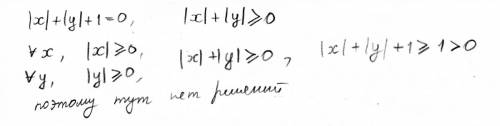 |x|+|y|+1=0, |x|+|y|⩾0
∀x, |x|⩾0, |x|+|y|⩾0, |x|+|y|+1⩾1>0
∀y, |y|⩾0,
поэтому тут нет решений